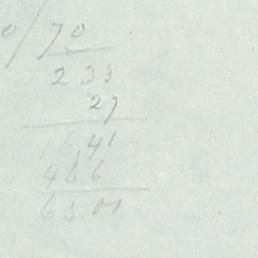 0/70
2.33
27
16.41
466
63.01